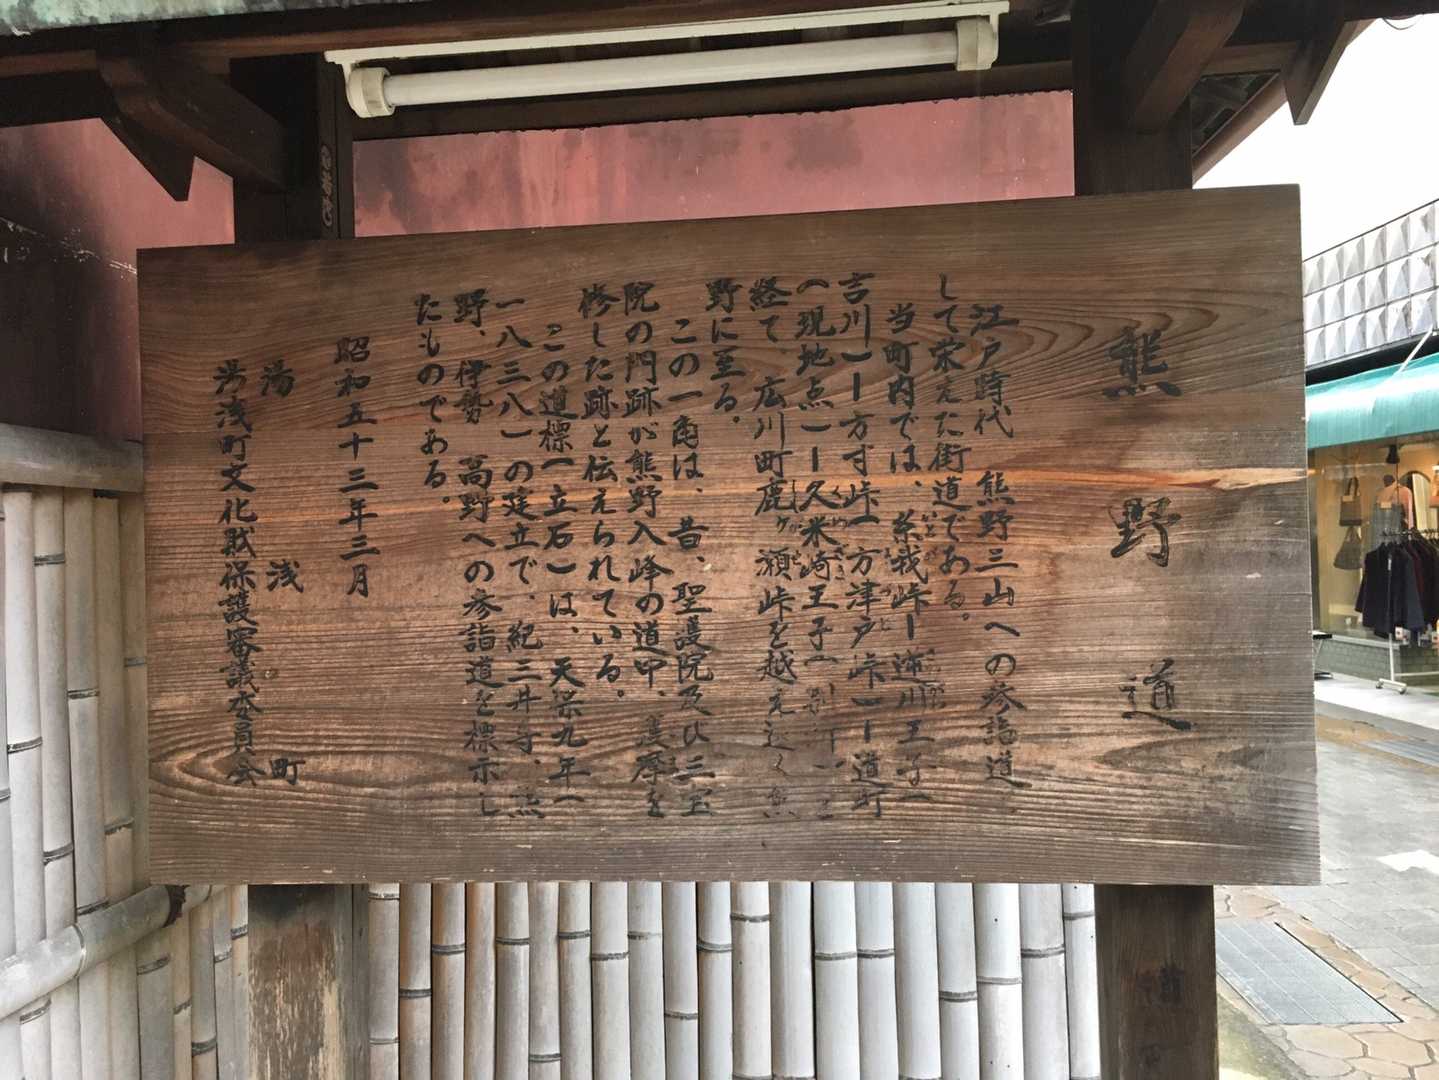 熊野道
江戸時代　熊野三山への参詣道、
して栄えた街道である。
当町内では、糸我峠ー逆川王子(
吉川)ー方寸峠(方津戸峠)ー道町
(現地点)ー久米崎王子(別所)
経て、広川町鹿ヶ瀬峠を越え遠く熊
野に至る。
この一角は、昔、聖護院及び三宝
院の門跡が熊野入峰の道中、護摩を
修した跡と伝えられている。
この道標(立石)は、天保九年(
一八三八)の建立で、紀三井寺、熊
野、伊勢　高野への参詣道を標示し
たものである。
昭和五十三年三月
湯浅町
湯浅町文化財保護審議委員会